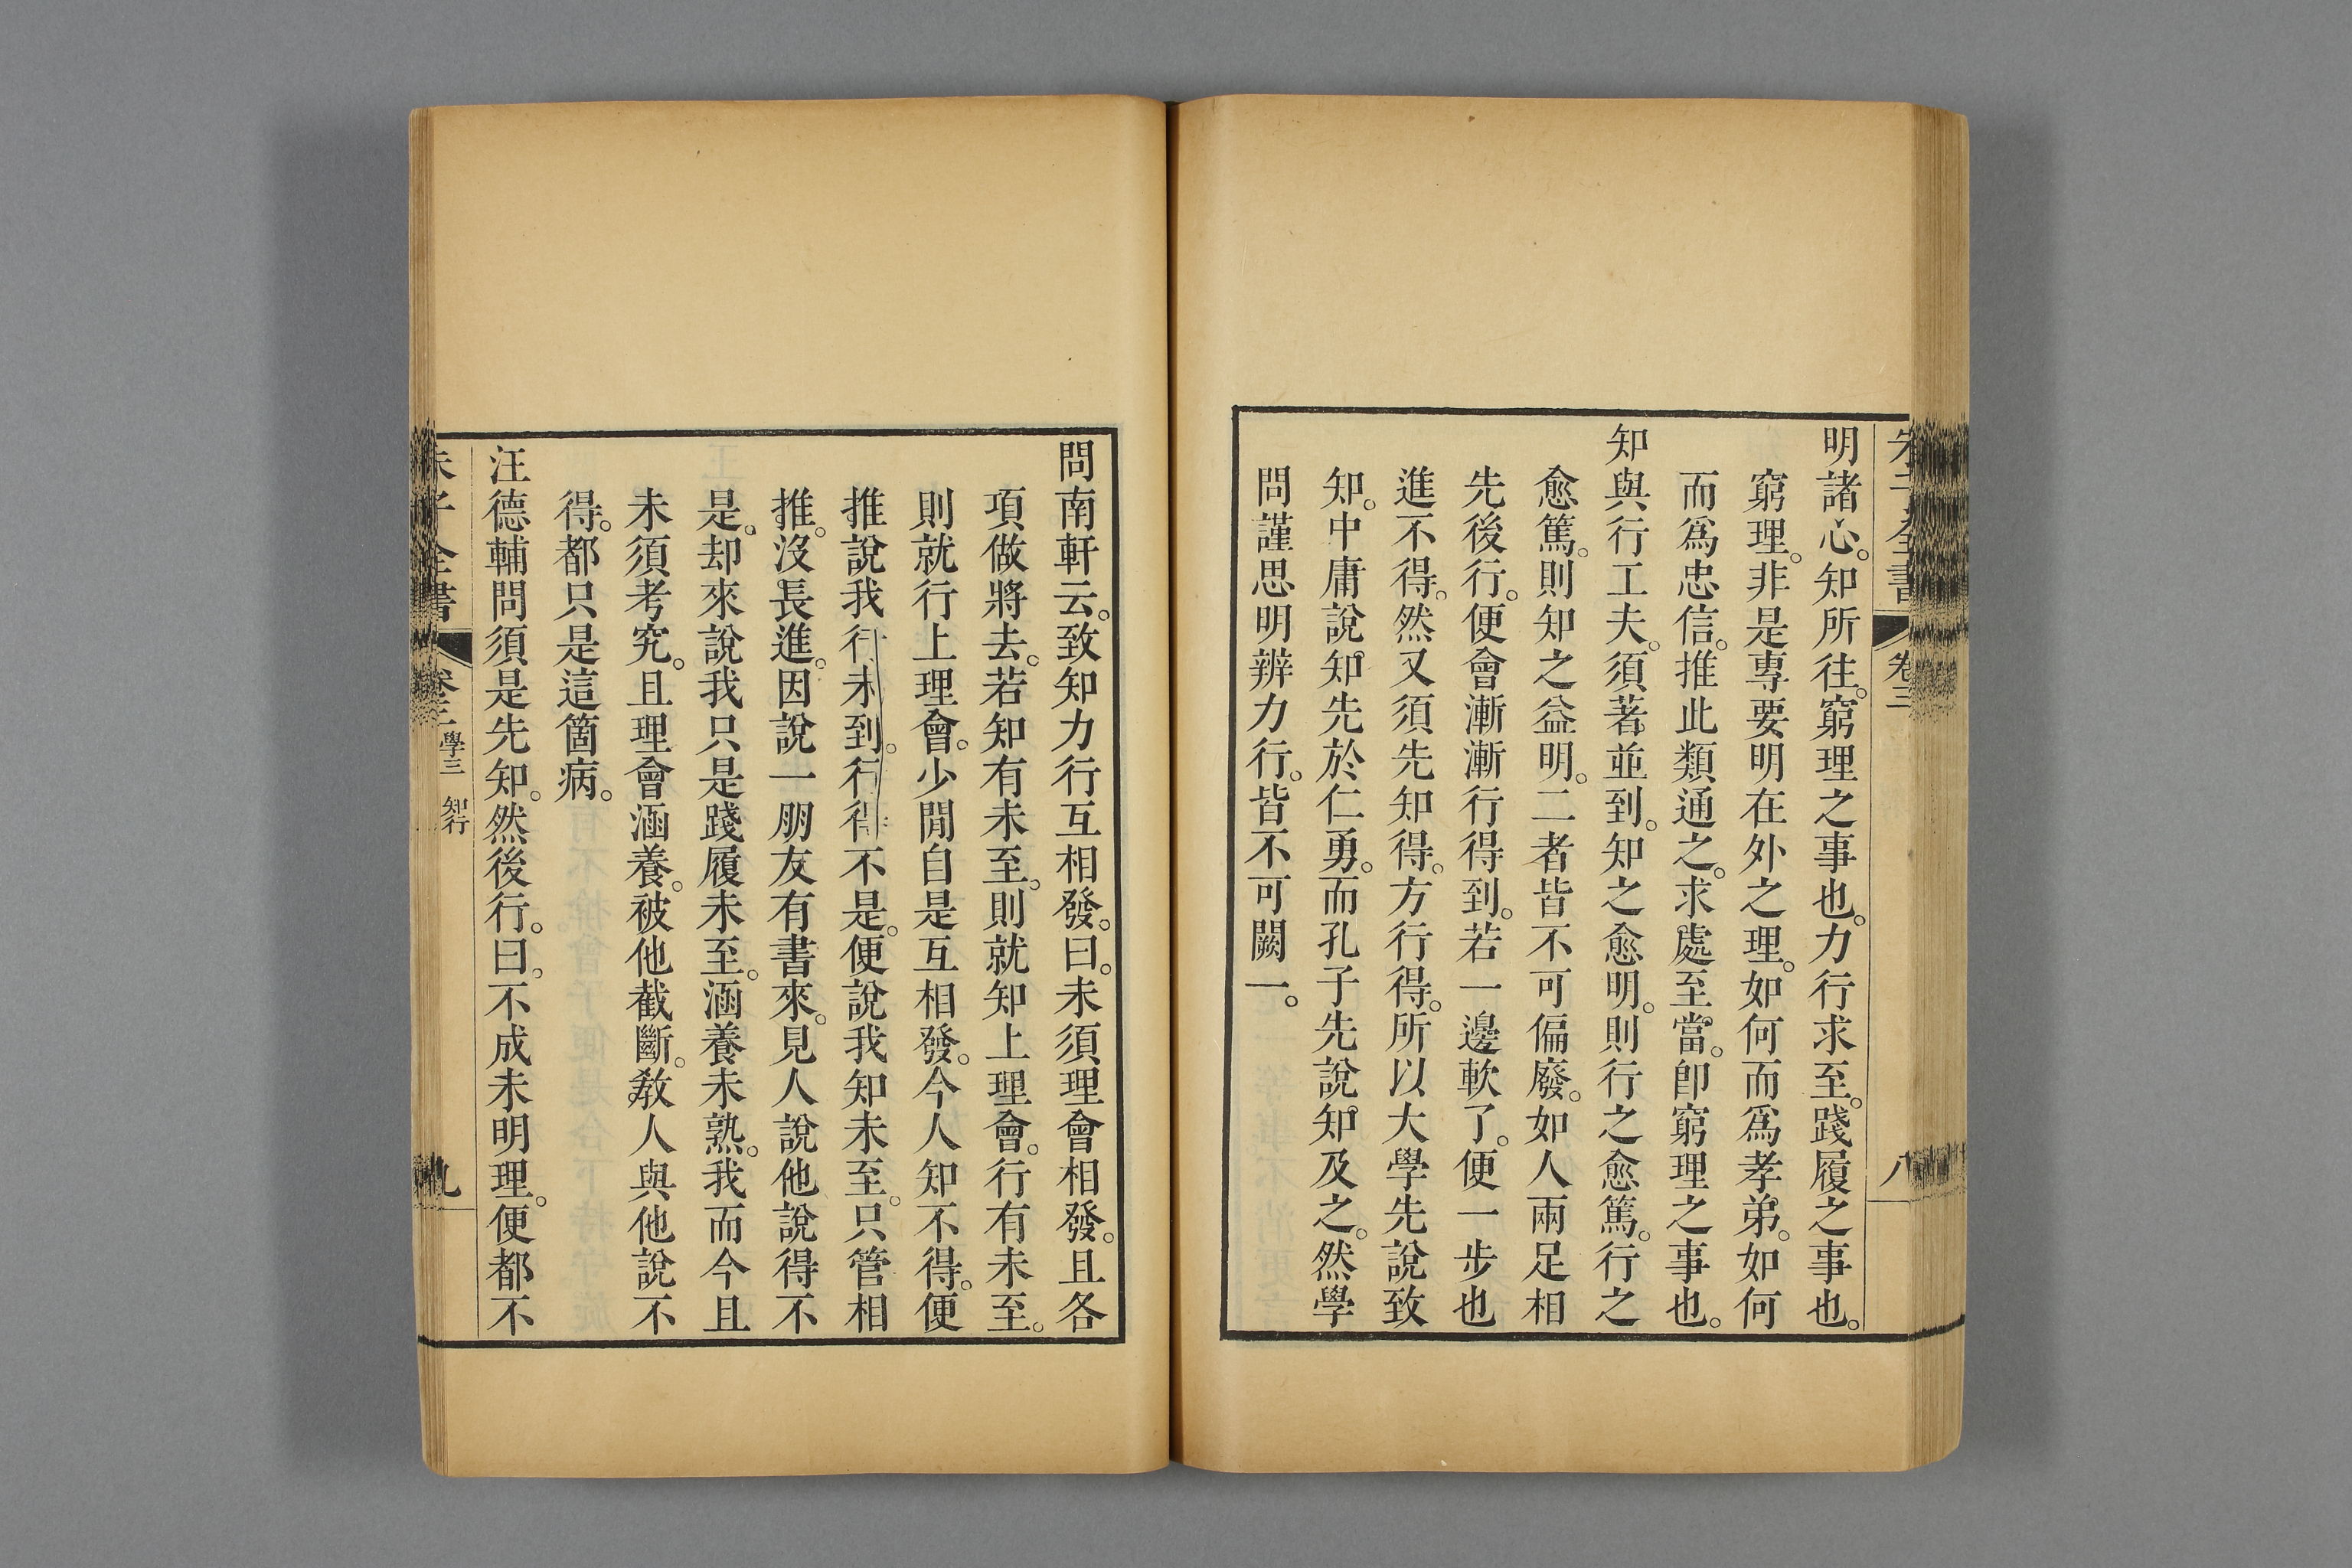 朱子全書 卷三 八
明諸心。知所往。窮理之事也。力行求至。踐履之事也。
窮理。非是專要明在外之理。如何而爲孝弟。如何
而爲忠信。推此類通之。求處至當。卽窮理之事也。
知與行工夫。須著並到。知之愈明。則行之愈篤。行之
愈篤。則知之益明。二者皆不可偏廢。如人兩足相
先後行。便會漸漸行得到。若一邊軟了。便一步也
進不得。然又須先知得。方行得。所以大學先說致
知。中庸說知先於仁勇。而孔子先說知及之。然學
問謹思明辨力行。皆不可闕一。
問南軒云。致知力行互相發。曰。未須理會相發。且各
項做將去。若知有未至。則就知上理會。行有未至。
則就行上理會。少閒自是互相發。今人知不得。便
推說我行未到。行得不是。便說我知未至。只管相
推。沒長進。因說一朋友有書來。見人說他說得不
是。却來說我只是踐履未至。涵養未熟。我而今且
未須考究。且理會涵養。被他截斷。敎人與他說不
得。都只是這箇病。
汪德輔問須是先知。然後行。曰。不成未明理。便都不
朱子全書 卷三 學三 知行 九